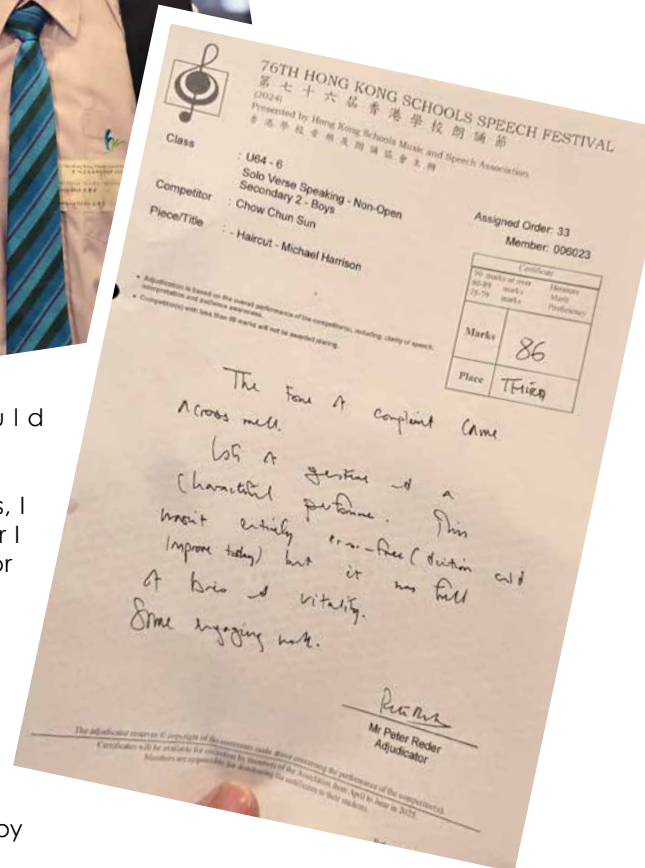 76TH HONG KONG SCHOOLS SPEECH FESTIVAL
第七十六屆香港學校朗誦節
(2024)
Presented by Hong Kong Schools Music and Speech Association
香港學校音樂及朗誦協會主辦
Class : U64 - 6
Solo Verse Speaking - Non-Open
Secondary 2 - Boys
Competitor : Chow Chun Sun
Piece/Title : - Haircut - Michael Harrison
Assigned Order: 33
Member: 006023
Certificate
90 marks or over Honours
80-89 marks Merit
75-79 marks Proficiency
Marks 86
Place THIRD
• Adjudication is based on the overall performance of the competitor(s), including: clarity of speech,
interpretation and audience awareness.
• Competitor(s) with less than 80 marks will not be awarded placing.
The tone of complaint came
Across well.
Lots of gesture and a
Characterful performance. This
wasn't entirely error-free (diction could
Improve today) but it was full
of brio and vitality.
Some engaging work.
Mr Peter Reder
Adjudicator
The adjudicator reserves © copyright of the comments made above concerning the performance of the competitor(s).
Certificates will be available for collection by members of the Association from April to June in 2025.
Members are responsible for distributing the certificates to their students.
uld
s, I
r I
or
by